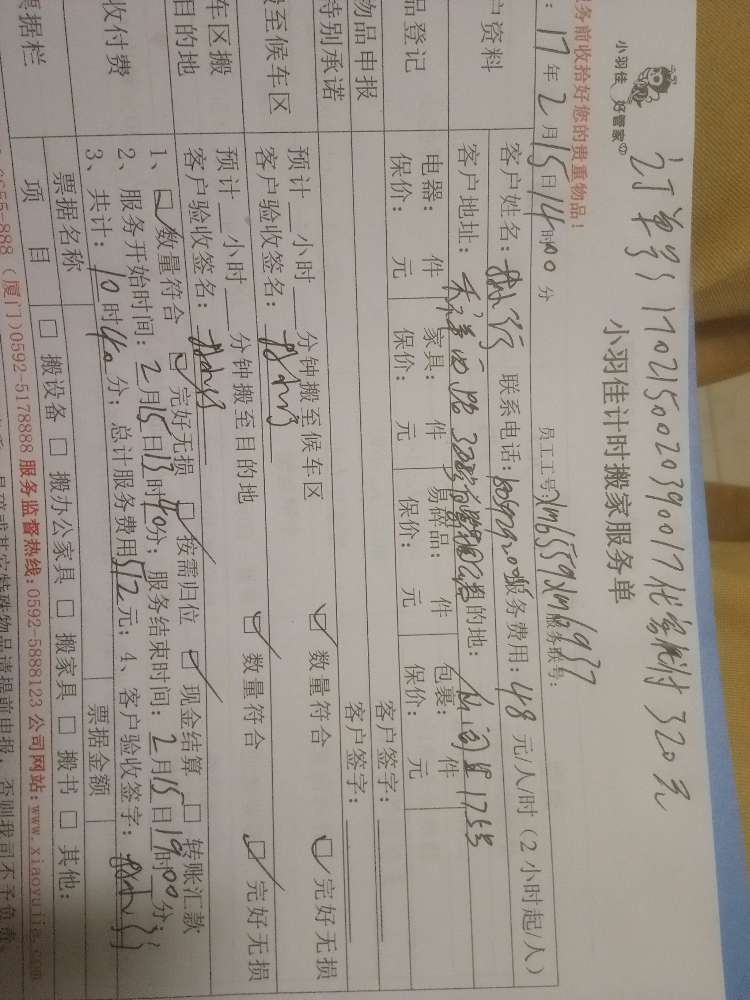 订单号 1702150020390017 代客付 320元
小羽佳 好管家
小羽佳计时搬家服务单
务前收拾好您的贵重物品！
员工工号 xm6559 xm3937 服务账号：
17年2月15日14时00分
户资料
客户姓名： 联系电话： 服务费用：48元/人/时（2小时起/人）
客户地址： 目的地：
品登记
电器： 件 家具： 件 易碎品： 件 包裹： 件
保价： 元 保价： 元 保价： 元 保价： 元
物品申报
客户签字：
特别承诺
客户签字：
至候车区
预计__小时__分钟搬至候车区 数量符合 完好无损
客户验收签名：
车区搬
目的地
预计__小时__分钟搬至目的地 数量符合 完好无损
客户验收签名：
收付费
1、数量符合 完好无损 按需归位 现金结算 转账汇款
2、服务开始时间：2月15日13时40分；服务结束时间：2月15日19时00分；
3、共计：10时40分；总计服务费用512元；4、客户验收签字：
票据栏
票据名称 票据金额
项 目 搬设备 搬办公家具 搬家具 搬书 其他：
（厦门）0592-5178888 服务监督热线：0592-5888123 公司网站：www.xiaoyujia.com